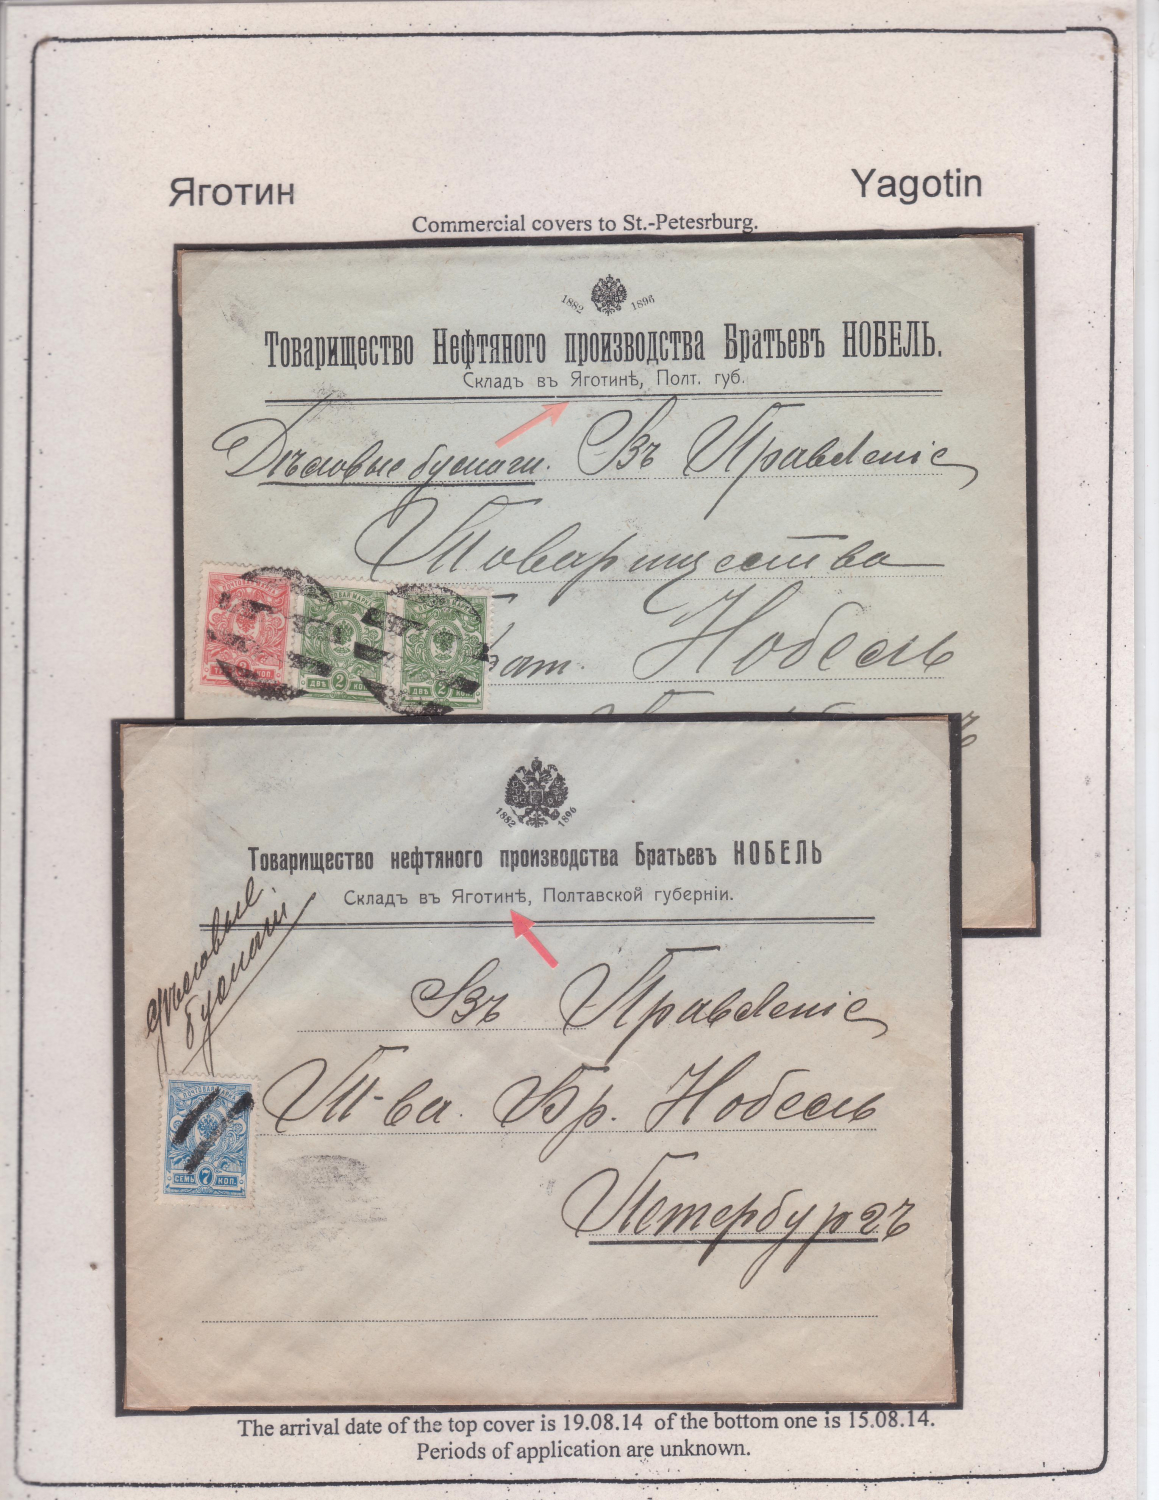 Яготин
Yagotin
Commercial covers to St.-Petesrburg.
1882 1896
Товарищество Нефтяного производства Братьевъ НОБЕЛЬ.
Складъ въ Яготинѣ, Полт. губ.
Дѣловые бумаги. Въ Правленіе
Товарищества
Бат. Нобель
ПОЧТОВАЯ МАРКА
3 КОП.
ДВѢ 2 КОП.
ДВѢ 2 КОП.
1882 1896
Товарищество нефтяного производства Братьевъ НОБЕЛЬ
Складъ въ Яготинѣ, Полтавской губерніи.
дѣловые
бумаги
Въ Правленіе
Т-ва Бр. Нобель
Петербургъ
ПОЧТОВАЯ МАРКА
СЕМЬ 7 КОП.
The arrival date of the top cover is 19.08.14 of the bottom one is 15.08.14.
Periods of application are unknown.